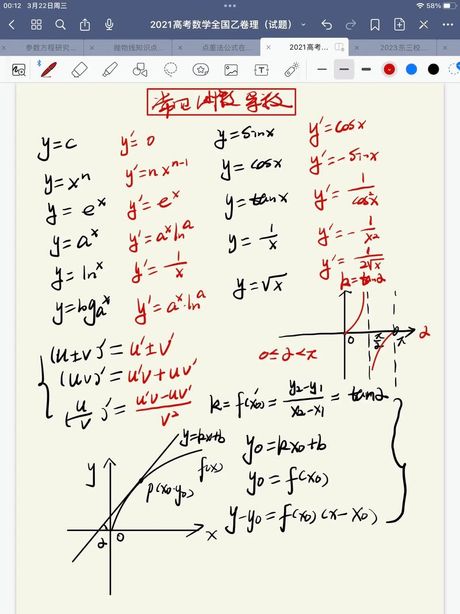 00:12 3月22日周三
58%
2021高考数学全国乙卷理（试题）
参数方程研究...
抛物线知识点
点差法公式在...
2021高考...
2023东三校...
常见函数导数
y=c y'=0 y=sinx y'=cosx
y=xⁿ y'=nxⁿ⁻¹ y=cosx y'=-sinx
y=eˣ y'=eˣ y=tanx y'=1/cos²x
y=aˣ y'=aˣlnᵃ y=1/x y'=-1/x²
y=lnˣ y'=1/x y=√x y'=1/2√x
y=logₐˣ y'=aˣ·lnᵃ
k=tan2
(u±v)'=u'±v'
(uv)'=u'v+uv'
(u/v)'=u'v-uv'/v²
0≤2<π
0 π/2 π 2
k=f'(x0)=y2-y1/x2-x1=tan2
y0=kx0+b
y0=f(x0)
y-y0=f(x0)(x-x0)
y y=kx+b
f(x)
p(x0-y0)
2 0 x